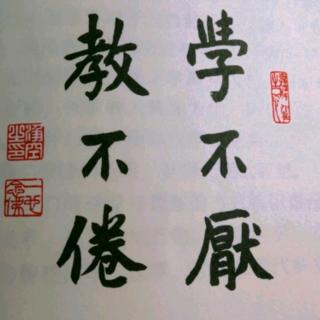 學不厭
教不倦